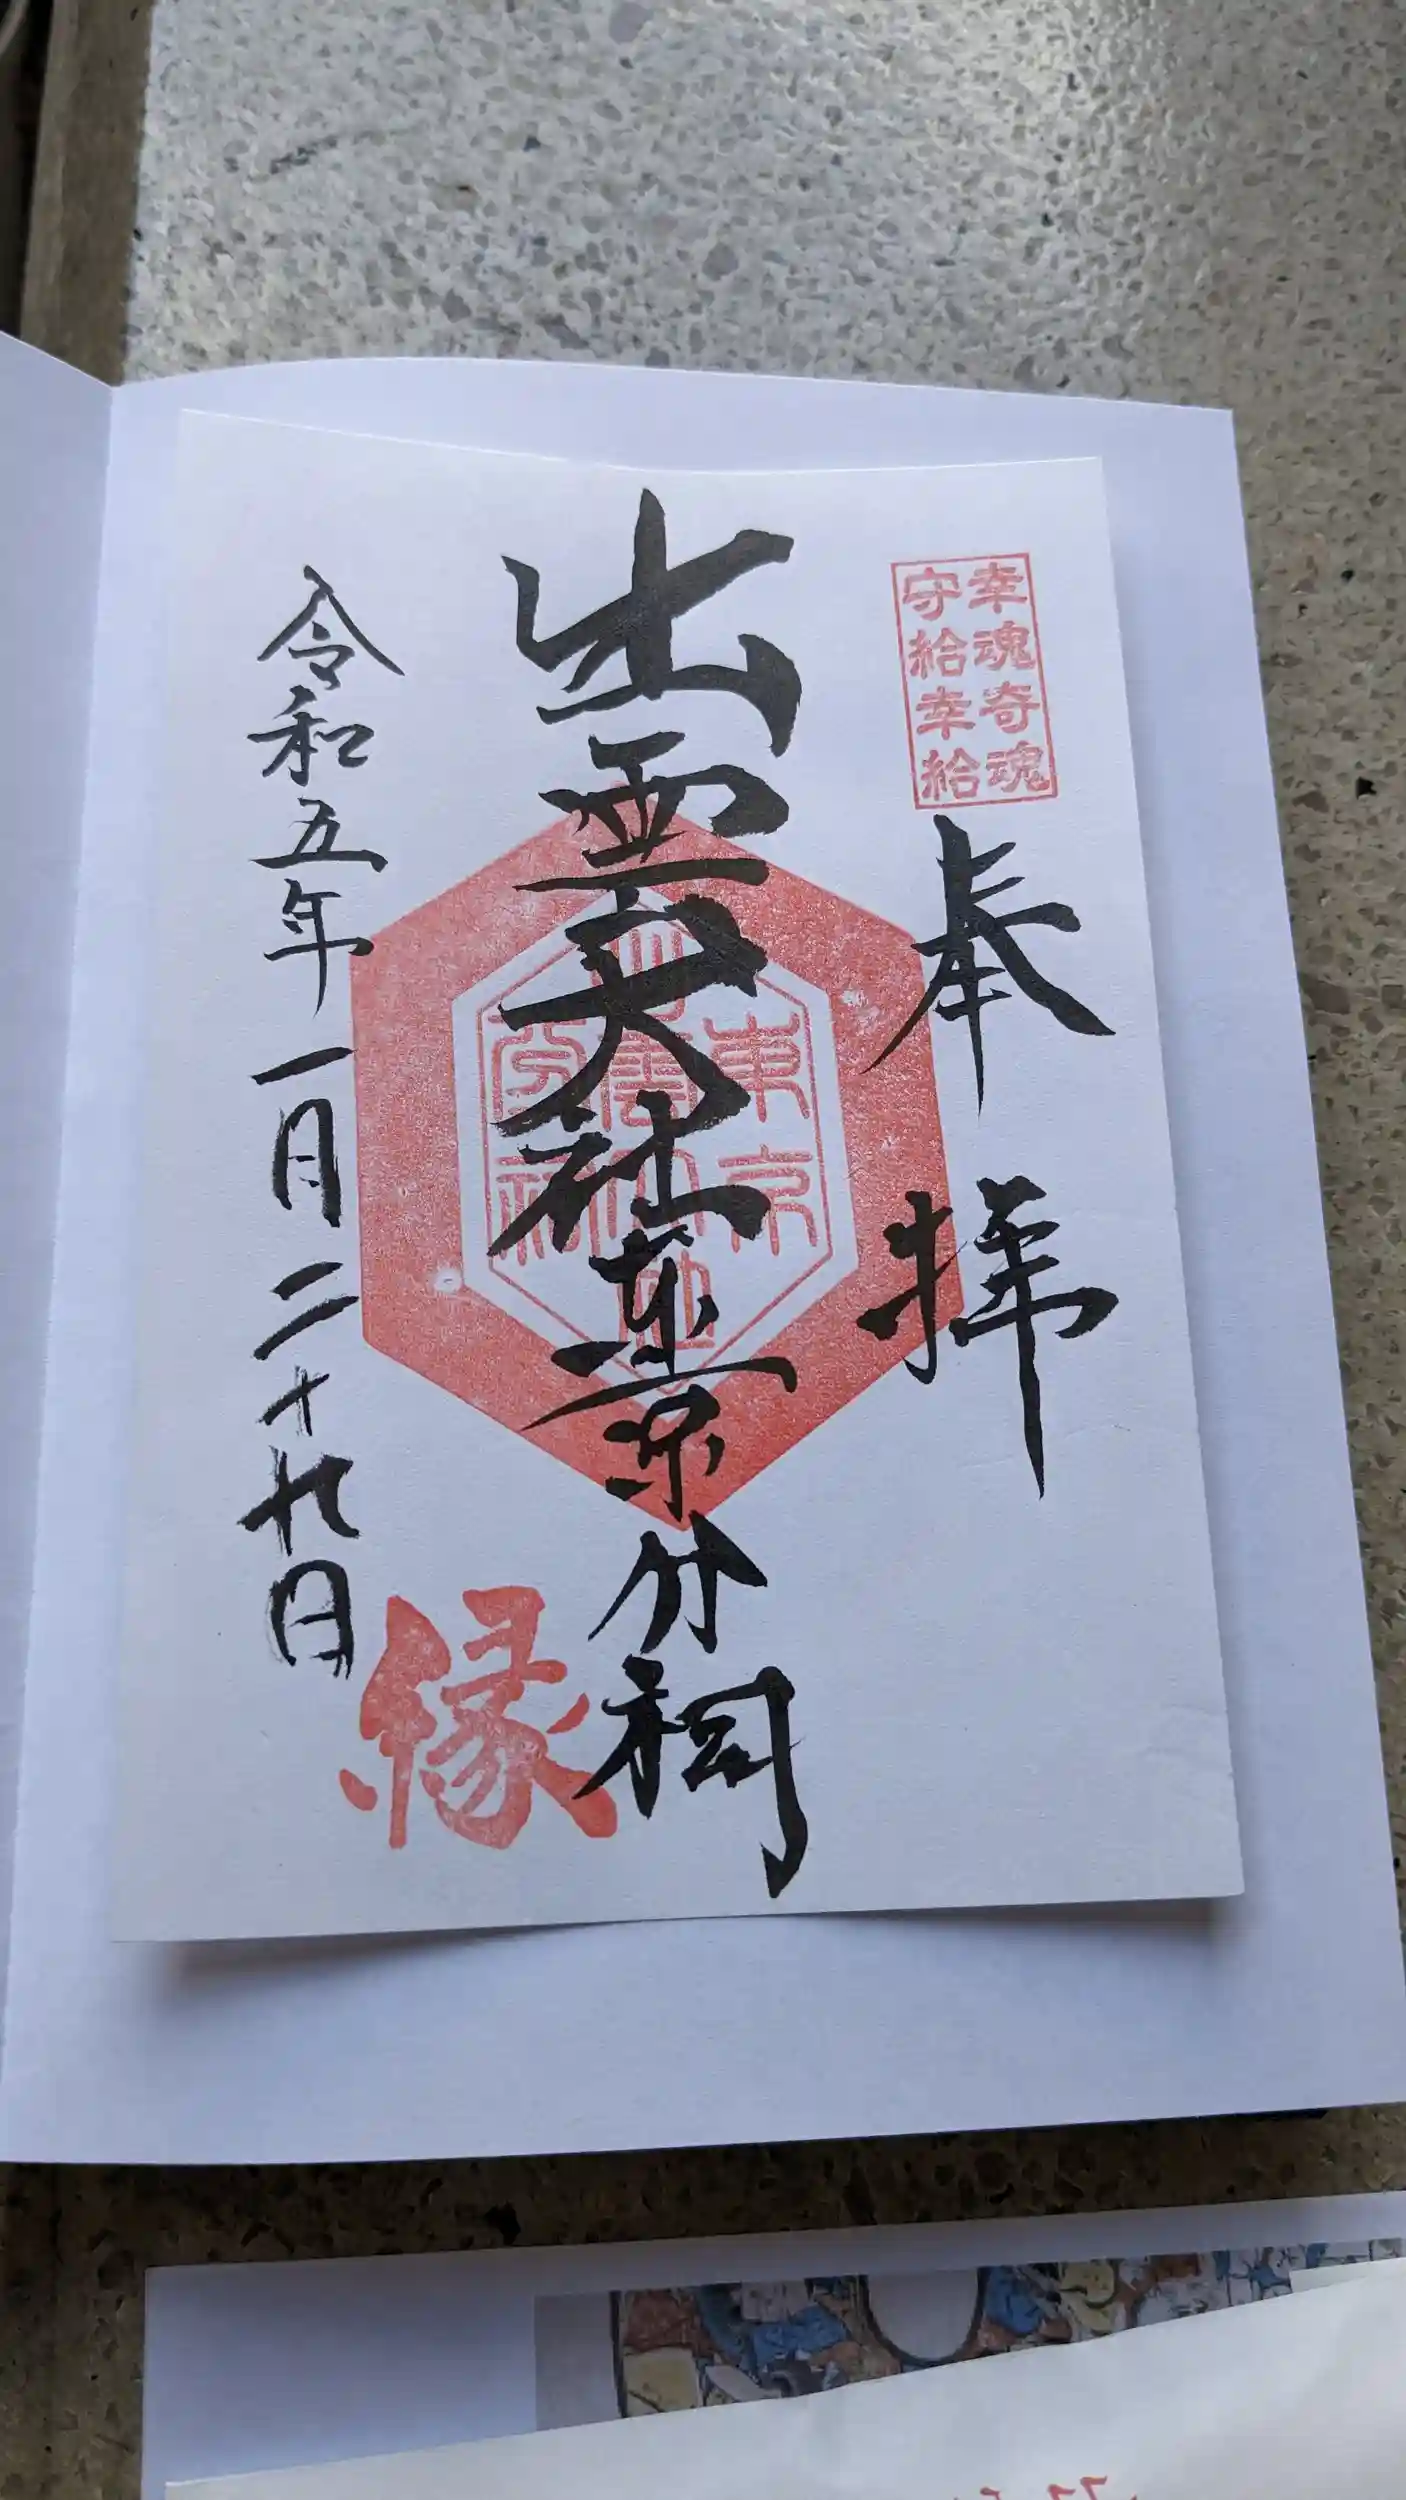 幸魂奇魂
守給幸給
奉拝
出雲大社東京分祠
東京
出雲大社
分祠
縁
令和五年一月二十九日